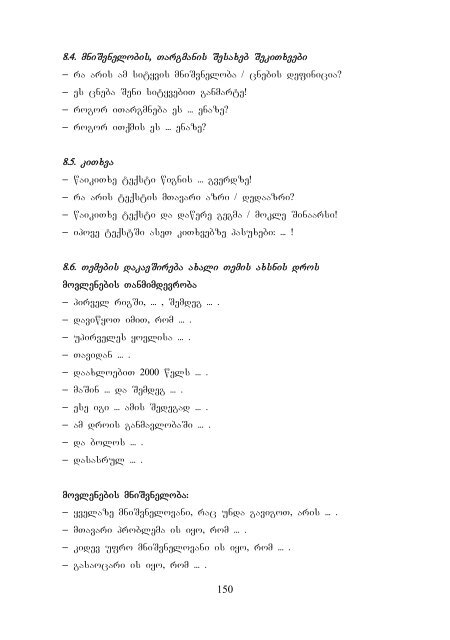 8.4. მნიშვნელობის, თარგმანის შესახებ შეკითხვები
– რა არის ამ სიტყვის მნიშვნელობა / ცნების დეფინიცია?
– ეს ცნება შენი სიტყვებით განმარტე!
– როგორ ითარგმნება ეს ... ენაზე?
– როგორ ითქმის ეს ... ენაზე?
8.5. კითხვა
– წაიკითხე ტექსტი წიგნის ... გვერდზე!
– რა არის ტექსტის მთავარი აზრი / დედააზრი?
– წაიკითხე ტექსტი და დაწერე გეგმა / მოკლე შინაარსი!
– იპოვე ტექსტში ასეთ კითხვებზე პასუხები: ... !
8.6. თემების დაკავშირება ახალი თემის ახსნის დროს
მოვლენების თანმიმდევრობა
– პირველ რიგში, ... , შემდეგ ... .
– დავიწყოთ იმით, რომ ... .
– უპირველეს ყოვლისა ... .
– თავიდან ... .
– დაახლოებით 2000 წელს ... .
– მაშინ ... და შემდეგ ... .
– ესე იგი ... ამის შედეგად ... .
– ამ დროის განმავლობაში ... .
– და ბოლოს ... .
– დასასრულ ... .
მოვლენების მნიშვნელობა:
– ყველაზე მნიშვნელოვანი, რაც უნდა გავიგოთ, არის ... .
– მთავარი პრობლემა ის იყო, რომ ... .
– კიდევ უფრო მნიშვნელოვანი ის იყო, რომ ... .
– გასაოცარი ის იყო, რომ ... .
150